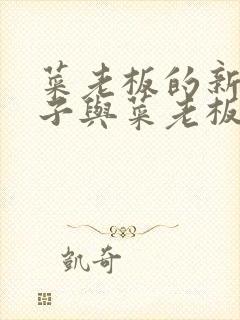 菜老板的新
子與菜老板
凱奇